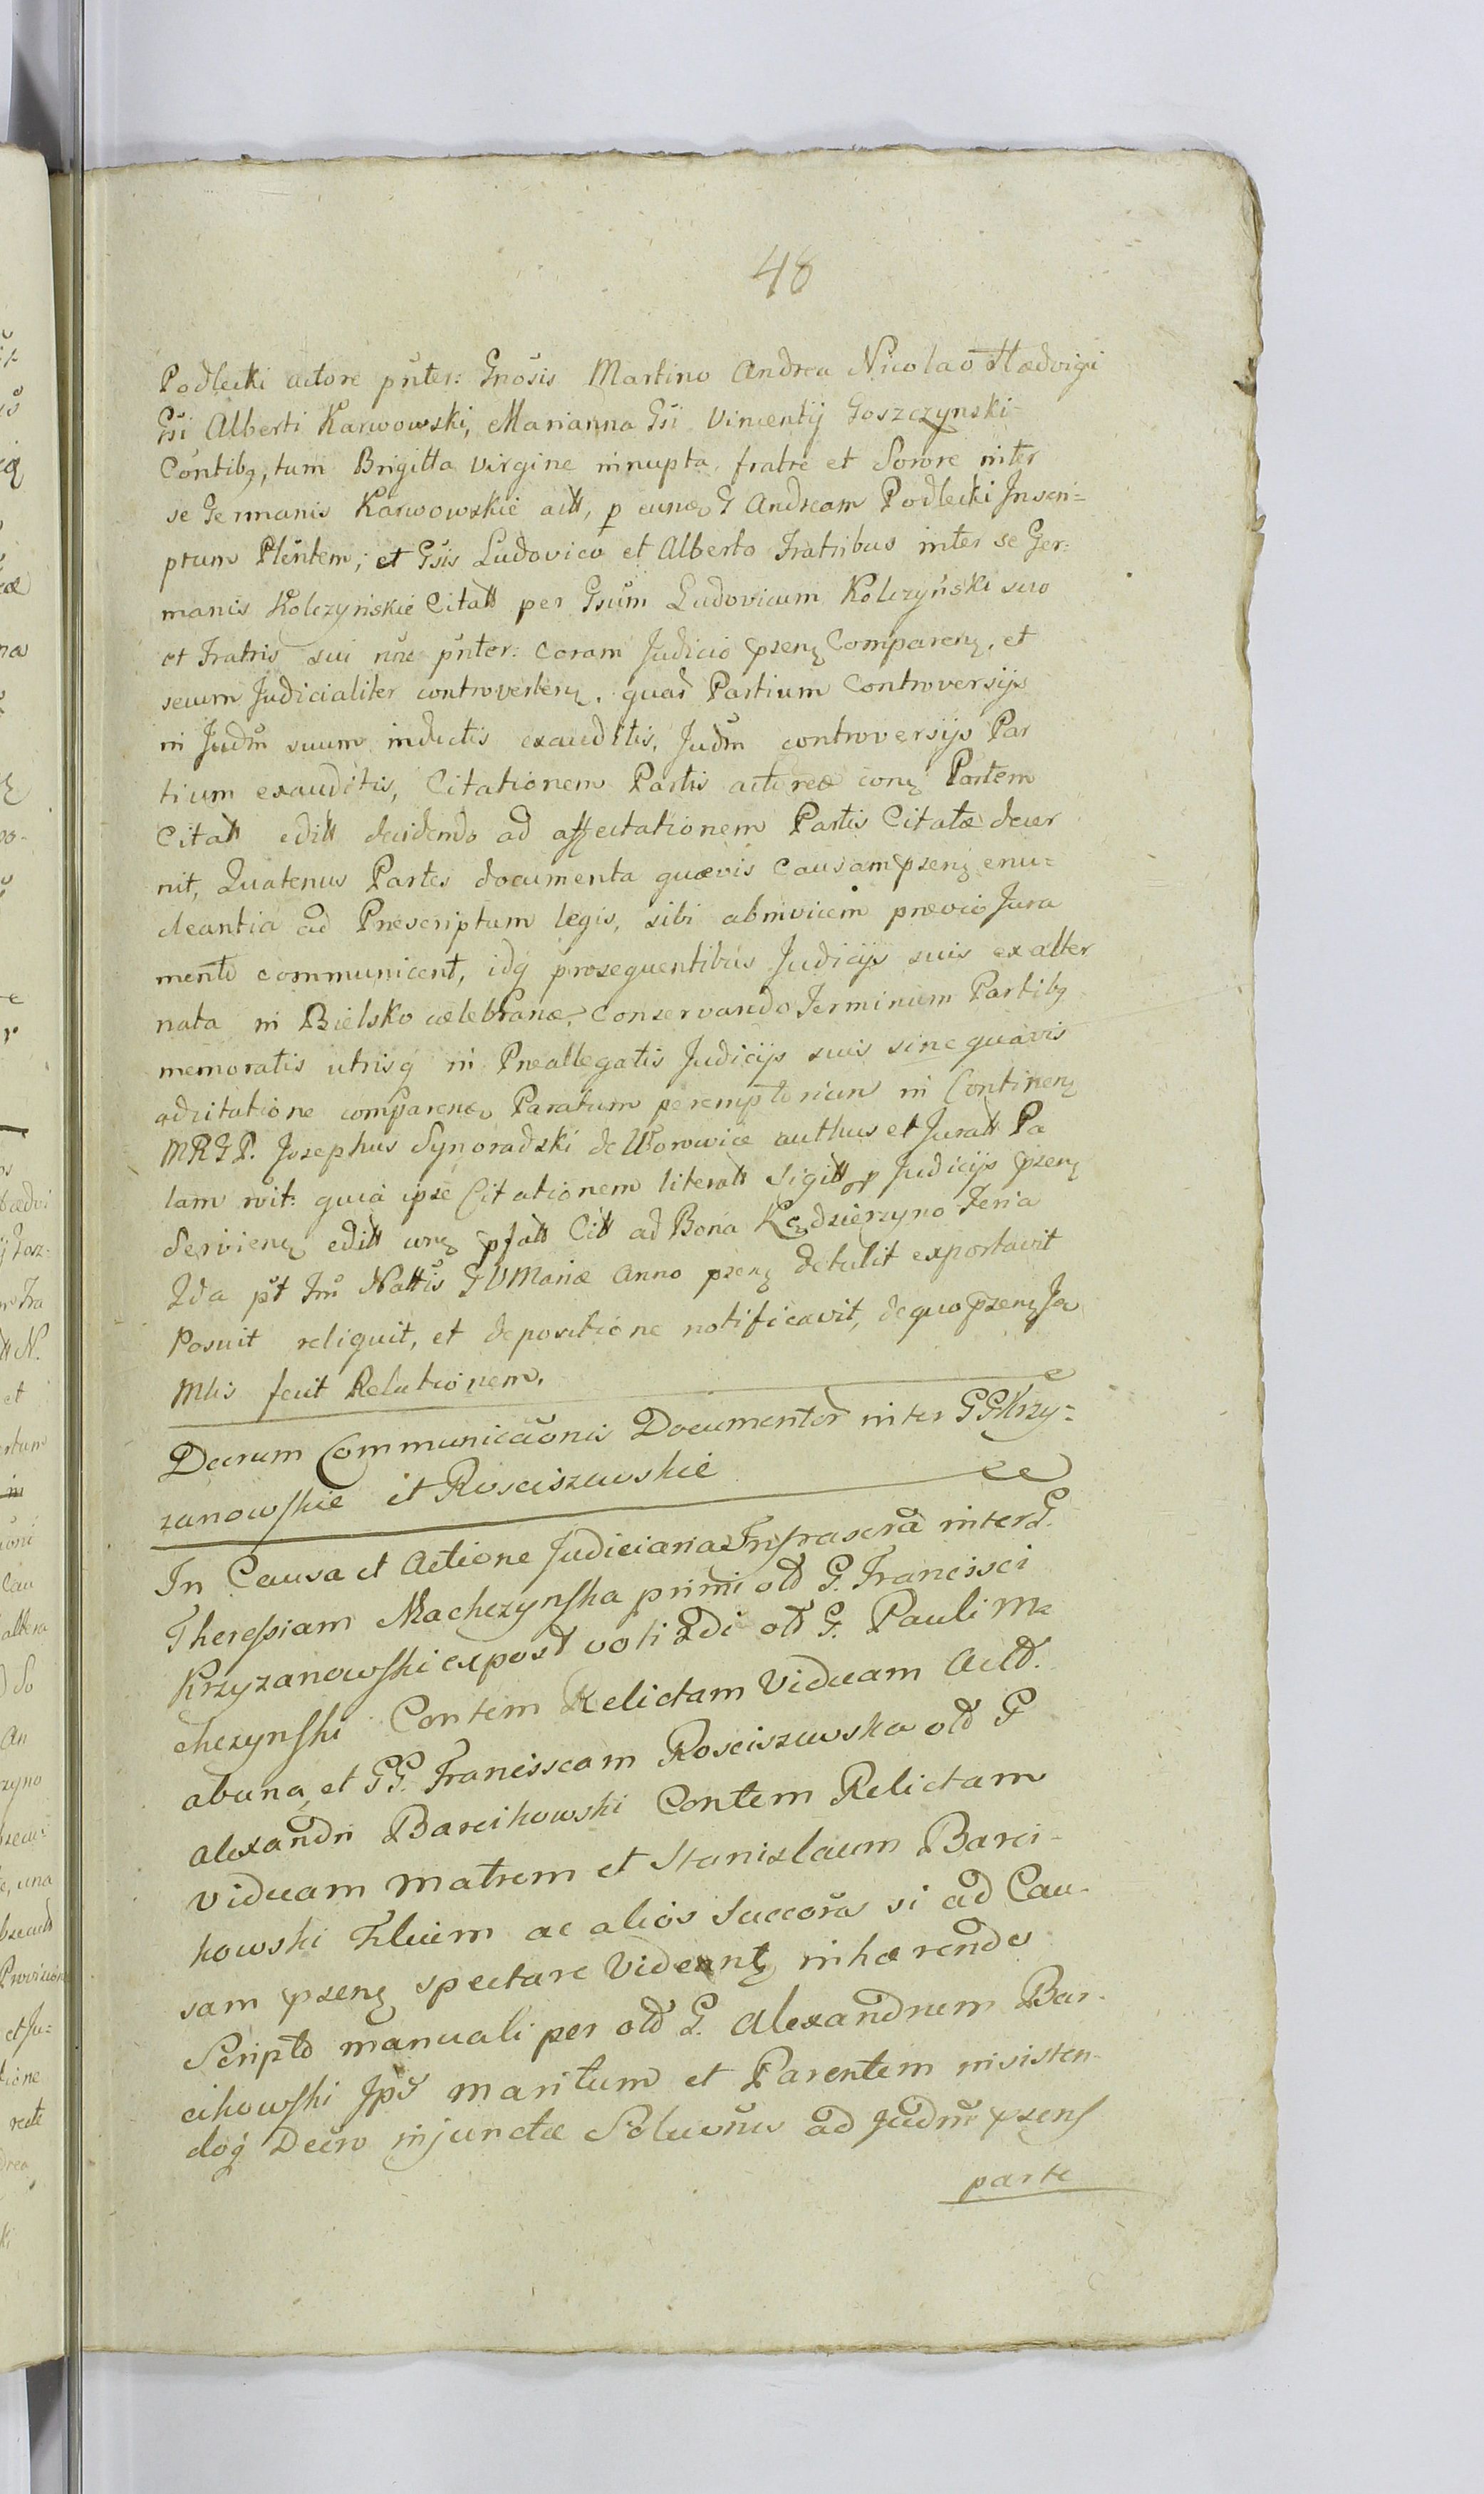 48
Podlecki actore pñter: Gnõsis Martino Andrea Nicolao Hædvigi
Gsi Alberti Karwowski, Marianna Gsi Vincentij Goszczynski
Contibq, tum Brigitta Virgine innupta, fratre et Sorore inter
se Germanis Karwowskie actt, p eund G Andream Podlecki Inscri=
ptum Plentem; et Gsis Ludovico et Alberto Fratribus inter se Ger=
manis Kolczyńskie Citatt per Gsum Ludovicum Kolczyński suo
et Fratris sui nñe pñter: coram Judicio pseng Compareng, et
secum Judicialiter controverteng, quas Partium Controversijs
in Judm suum inductis exauditis, Judm controversijs Par
tium exauditis, Citationem Partis actoreæ cong Partem
Citatt editt decidendo ad affectationem Partis Citatæ decer
nit, Quatenus Partes documenta quævis Causam pseng enu=
cleantia ad Præscriptum legis, sibi abinvicem prævio Jura
mento communicent, idq prosequentibus Judicijs suis ex alter
nata in Bielsko celebranæ, Conservando Terminum Partibq
memoratis utrisq in Præallegatis Judicijs suis sine quavis
adcitatione comparend Paratum peremptorium in Contineng
MRGP. Josephus Synoradski de Worowice authus et Juratt Pa
lam rvit: quia ipse Citationem literatt Sigitt op Judicijs pseng
Servieng editt ung pfatt Citt ad Bona Kędzierzyno Feria
2da pt Fm Nattis GVMariæ Anno pseng detulit exportavit
Posuit reliquit, et depositione notificavit, de quo pseng Ja
Mlis fecit Relationem.
Decrum Communicaõnis Documentor inter GGKrzy=
zanowskie et Rosciszewskie
In Causa et Actione Judiciaria Infrascra inter G.
Theressiam Machczynska primi old G. Francisci
Krzyzanowski expost voti 2di old G. Pauli Ma
chczynski Contem Relictam Viduam Actd.
abuna, et GG. Francisscam Rosciszewska old G
Alexandri Barcikowski Contem Relictam
Viduam Matrem et Stanislaum Barci-
kowski Filium ac alios Succoras si ad Cau-
sam pseng spectare Videnng inhærendo
Scripto manuali per old G. Alexandrum Bar-
cikowski Ips maritum et Parentem insisten-
doq Decro injunctæ Soluõnis ad Judm psens
parte